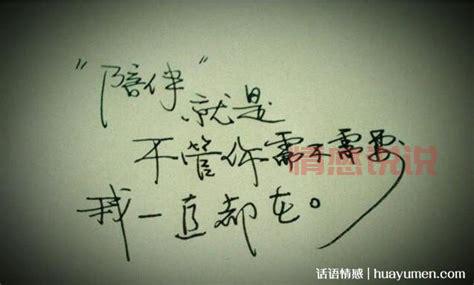 “陪伴”就是
不管你需不需要
我一直都在。
情感说说
话语情感 | huayumen.com